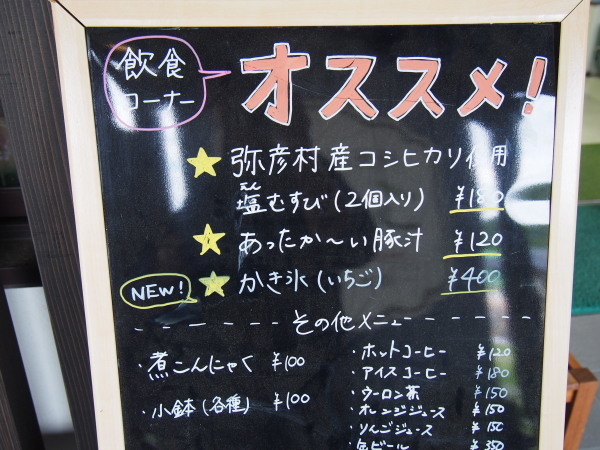 飲食
コーナー
オススメ!
★弥彦村産コシヒカリ使用
えん
塩むすび(2個入り) ¥180
★あったか〜い豚汁 ¥120
NEW!
★かき氷(いちご) ¥400
その他メニュー
・煮こんにゃく ¥100
・小鉢(各種) ¥100
・ホットコーヒー ¥120
・アイスコーヒー ¥180
・ウーロン茶 ¥150
・オレンジジュース ¥150
・りんごジュース ¥150
・缶ビール ¥350